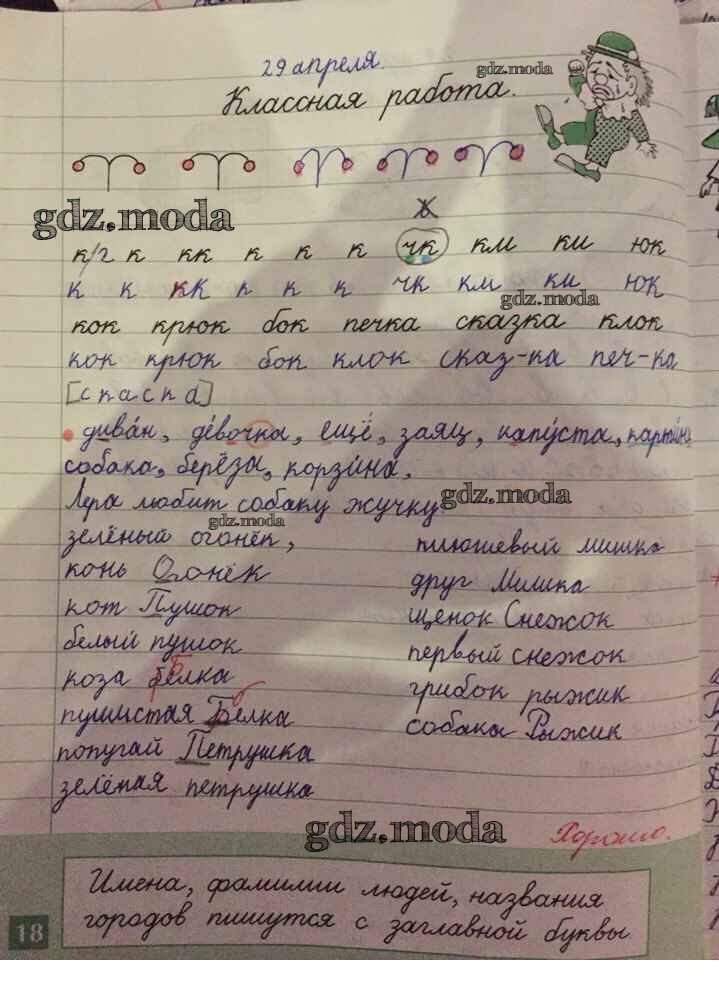 29 апреля.
Классная работа.
gdz.moda
gdz.moda
к/г к кк к к к чк км ки юк
к к кк к к к чк км ки юк
gdz.moda
кок крюк бок печка сказка клок
кок крюк бок клок сказ-ка печ-ка
[с к а с к а]
диван, девочка, ещё, заяц, капуста, картина
собака, берёза, корзина.
Лера любит собаку жучку.
gdz.moda
gdz.moda
зелёный огонёк,
конь Огонёк
кот Пушок
белый пушок
коза Белка
пушистая белка
попугай Петрушка
зелёная петрушка
плюшевый мишка
друг Мишка
щенок Снежок
первый снежок
грибок рыжик
собака Рыжик
gdz.moda
Хорошо.
Имена, фамилии людей, названия
городов пишутся с заглавной буквы
18